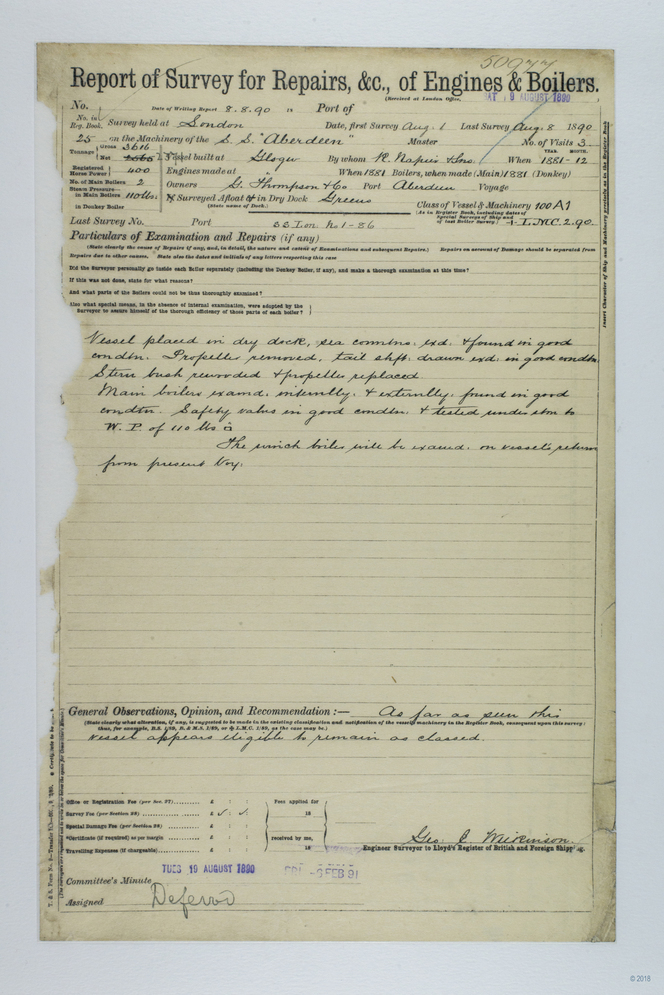 50977
Report of Survey for Repairs, &c., of Engines & Boilers.
(Received at London Office, SAT 9 AUGUST 1890
No. Date of Writing Report 8.8.90 Port of
No. in Reg. Book. Survey held at London Date, first Survey Aug. 1 Last Survey Aug. 8 1890
25 on the Machinery of the S. S. "Aberdeen" Master No. of Visits 3
Tonnage Gross 3616 Net Vessel built at Glasgow By whom R. Napier & Sons. When 1881-12 YEAR. MONTH.
Registered Horse Power 400 Engines made at " When 1881 Boilers, when made (Main) 1881 (Donkey)
No. of Main Boilers 2 Owners G. Thompson & Co Port Aberdeen Voyage
Steam Pressure— in Main Boilers 110 lbs. Surveyed Afloat & in Dry Dock Greens Class of Vessel & Machinery 100 A1
in Donkey Boiler (State name of Dock.) (As in Register Book, including dates of Special Surveys of Ship and of last Boiler Survey.) + L.M.C. 2.90
Last Survey No. Port SS Lon No 1-86
Particulars of Examination and Repairs (if any)
(State clearly the cause of Repairs if any, and, in detail, the nature and extent of Examinations and subsequent Repairs.) Repairs on account of Damage should be separated from
Repairs due to other causes. State also the dates and initials of any letters respecting this case
Did the Surveyor personally go inside each Boiler separately (including the Donkey Boiler, if any), and make a thorough examination at this time?
If this was not done, state for what reasons?
And what parts of the Boilers could not be thus thoroughly examined?
Also what special means, in the absence of internal examination, were adopted by the
Surveyor to assure himself of the thorough efficiency of those parts of each boiler?
Vessel placed in dry dock, sea conntns. exd. & found in good
condtn. Propeller removed, tail shft. drawn exd. in good condtn.
Stern bush rewooded & propeller replaced
Main boilers examd. internlly. & externlly. found in good
condtn. Safety valves in good condtn. & tested under stm to
W. P. of 110 lbs
The winch boiler will be examd. on vessel's return
from present Voy.
Insert Character of Ship and Machinery precisely as in the Register Book
General Observations, Opinion, and Recommendation:— As far as seen this
(State clearly what alteration, if any, is suggested to be made in the existing classification and notification of the vessel's machinery in the Register Book, consequent upon this survey;
thus, for example, B.S. 1/89, B. & M.S. 1/89, or L.M.C. 1/89, as the case may be.)
vessel appears eligible to remain as classed.
Office or Registration Fee (per Sec. 27).......... £ : :
Survey Fee (per Section 28) .......... £ : : Fees applied for 18
Special Damage Fee (per Section 28) .......... £ : :
*Certificate (if required) as per margin .......... £ : : received by me,
Travelling Expenses (if chargeable).......... £ : : 18
Geo. C. Wilkinson.
Engineer Surveyor to Lloyd's Register of British and Foreign Shipping.
TUES 19 AUGUST 1890 FRI -6 FEB 91
Committee's Minute
Assigned Deferred
© 2018